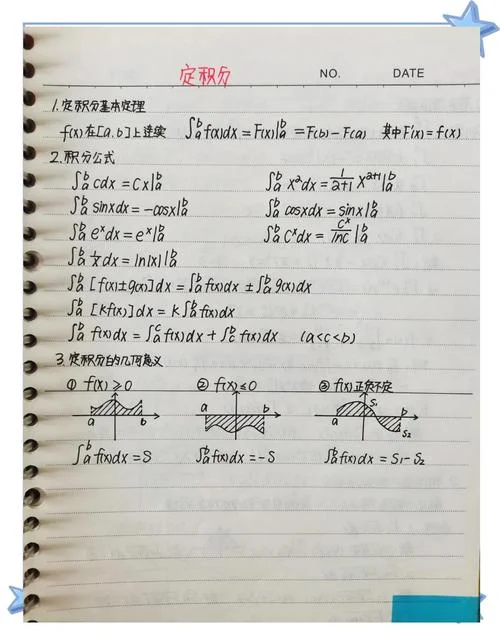 定积分
NO. DATE
1.定积分基本定理
f(x)在[a,b]上连续 ∫ₐᵇ f(x)dx = F(x)|ₐᵇ = F(b) - F(a) 其中F'(x) = f(x)
2.积分公式
∫ₐᵇ cdx = cx|ₐᵇ ∫ₐᵇ x²dx = 1/(2+1) x²⁺¹|ₐᵇ
∫ₐᵇ sinxdx = -cosx|ₐᵇ ∫ₐᵇ cosxdx = sinx|ₐᵇ
∫ₐᵇ eˣdx = eˣ|ₐᵇ ∫ₐᵇ cˣdx = cˣ/lnc|ₐᵇ
∫ₐᵇ 1/x dx = ln|x||ₐᵇ
∫ₐᵇ [f(x)±g(x)]dx = ∫ₐᵇ f(x)dx ± ∫ₐᵇ g(x)dx
∫ₐᵇ [kf(x)]dx = k∫ₐᵇ f(x)dx
∫ₐᵇ f(x)dx = ∫ₐᶜ f(x)dx + ∫꜀ᵇ f(x)dx (a<c<b)
3.定积分的几何意义
① f(x)≥0 ② f(x)≤0 ③ f(x)正负不定
a b a b a b S₁ S₂
∫ₐᵇ f(x)dx = S ∫ₐᵇ f(x)dx = -S ∫ₐᵇ f(x)dx = S₁-S₂